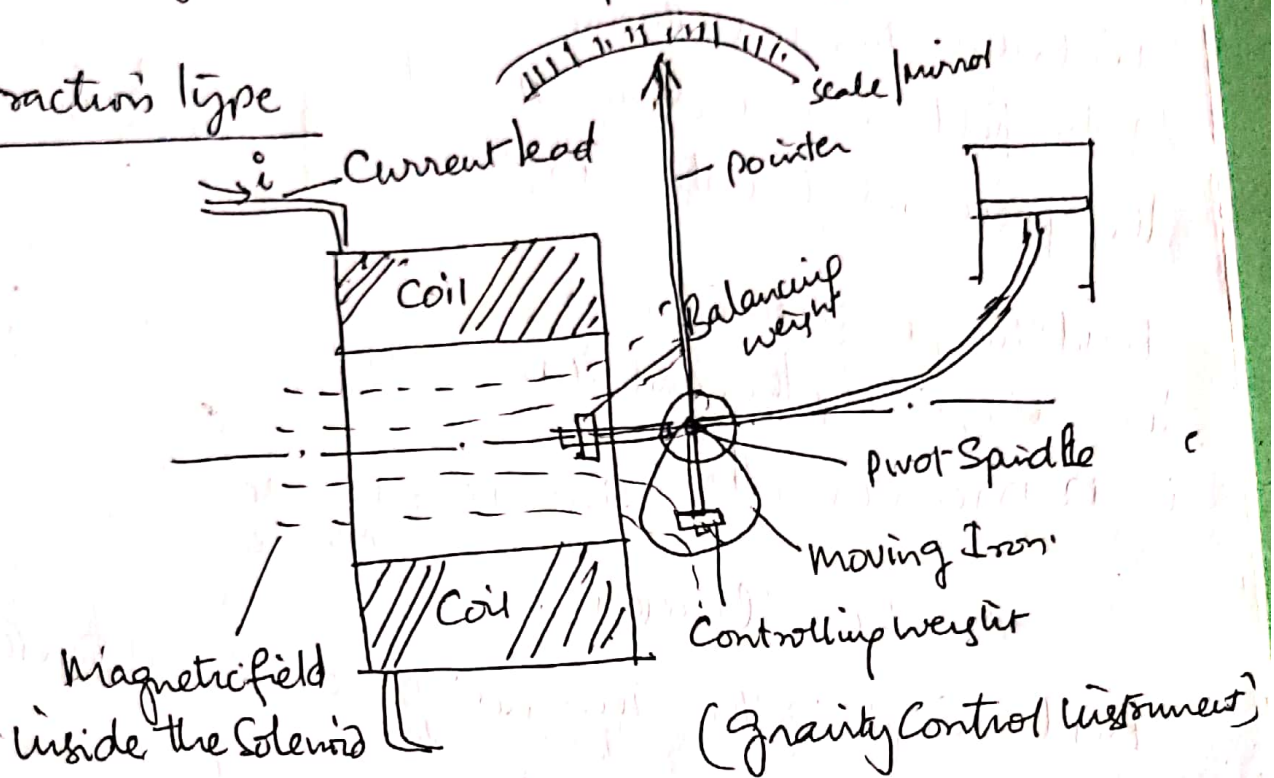 raction type
scale/mirror
i
Current lead
pointer
Coil
Balancing
weight
Pivot Spindle
Moving Iron.
Coil
Controlling weight
Magnetic field
inside the Solenoid
(Gravity Control Instrument)